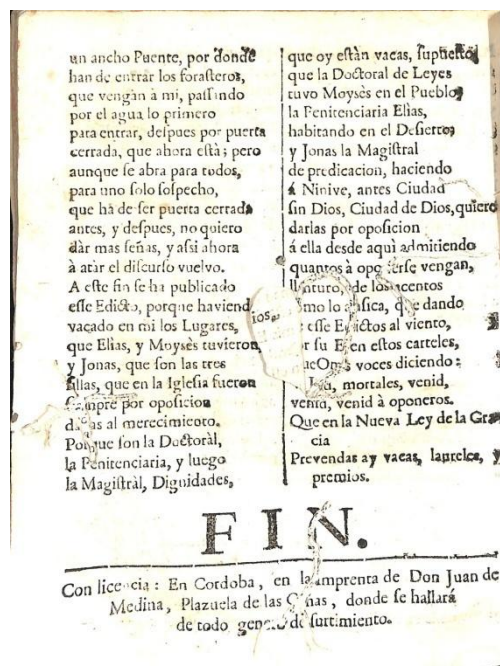 un ancho Puente, por donde
han de entrar los forasteros,
que vengan à mi, passando
por el agua lo primero
para entrar, despues por puerta
cerrada, que ahora està; pero
aunque se abra para todos,
para uno solo sospecho,
que há de ser puerta cerrada
antes, y despues, no quiero
dàr mas señas, y assi ahora
à atàr el discurso vuelvo.
A este fin se ha publicado
esse Edicto, porque haviend
vacado en mi los Lugares,
que Elias, y Moysès tuvieron,
y Jonas, que son las tres
sillas, que en la Iglesia fueron
siempre por oposicion
al merecimiento.
Porque son la Doctoràl,
la Penitenciaria, y luego
la Magistràl, Dignidades,
que oy estàn vacas, supuesto
que la Doctoral de Leyes
tuvo Moysès en el Pueblo,
la Penitenciaria Elias,
habitando en el Desierto,
y Jonas la Magistral
de predicacion, haciendo
á Ninive, antes Ciudad
sin Dios, Ciudad de Dios, quiero
darlas por oposicion
á ella desde aqui admitiendo
quantos à opo erse vengan,
de los acentos
mo lo que dando
esse E ictos al viento,
r su E en estos carteles,
voces diciendo:
mortales, venid,
venid, venid à oponeros.
Que en la Nueva Ley de la Gra
cia
Prevendas ay vacas, laureles, y
premios.
FIN.
Con licencia: En Cordoba, en la imprenta de Don Juan de
Medina, Plazuela de las Cañas, donde se hallará
de todo genero de surtimiento.